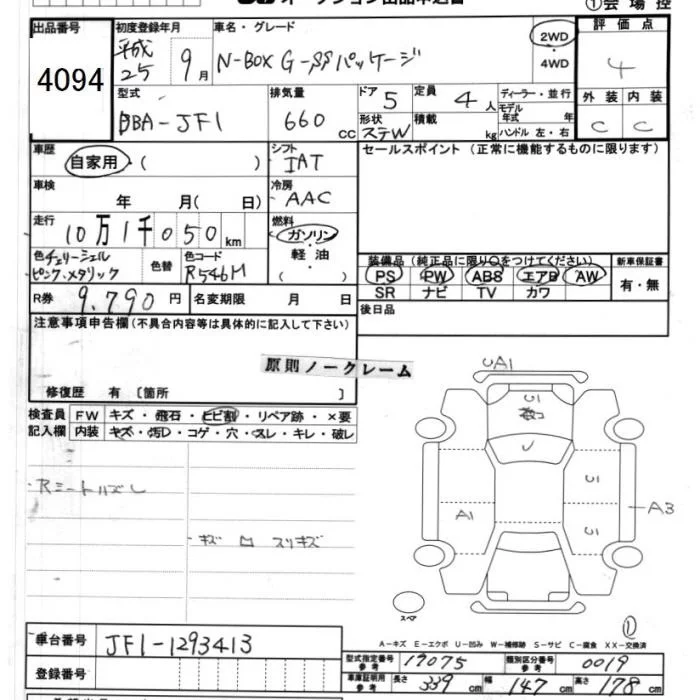 ①会場控
出品番号 初度登録年月 車名・グレード 評価点
4094 平成25 9月 N-BOX G-SSパッケージ 2WD・4WD 4
型式 排気量 ドア 5 定員 4人 ディーラー・並行 外装 内装
DBA-JF1 660 CC 形状 ステW 積載 kg モデル年式 年 ハンドル 左・右 C C
車歴 自家用・( ) シフト IAT セールスポイント (正常に機能するものに限ります)
車検 年 月( 日) 冷房 AAC
走行 10万1千050km 燃料 ガソリン・軽油
色 チェリーシェルピンク.メタリック 色替 色コード R546M 装備品(純正品に限り○をつけてください。) 新車保証書
PS PW ABS エアB AW 有・無
SR ナビ TV カワ
R券 9.790円 名変期限 月 日 後日品
注意事項申告欄(不具合内容等は具体的に記入して下さい)
原則ノークレーム
修復歴 有 [箇所 ]
検査員 FW キズ・飛石・ヒビ割・リペア跡・×要
記入欄 内装 キズ・汚レ・コゲ・穴・スレ・キレ・破レ
UA1
U1
U
U1
A1
A3
U1
スペア
①
A-キズ E-エクボ U-凹み W-補修跡 S-サビ C-腐食 XX-交換済
車台番号 JF1-1293413
型式指定番号 参考 17075 類別区分番号 参考 0019
登録番号 車庫証明用 参考 長さ 339cm 幅 147cm 高さ 178cm